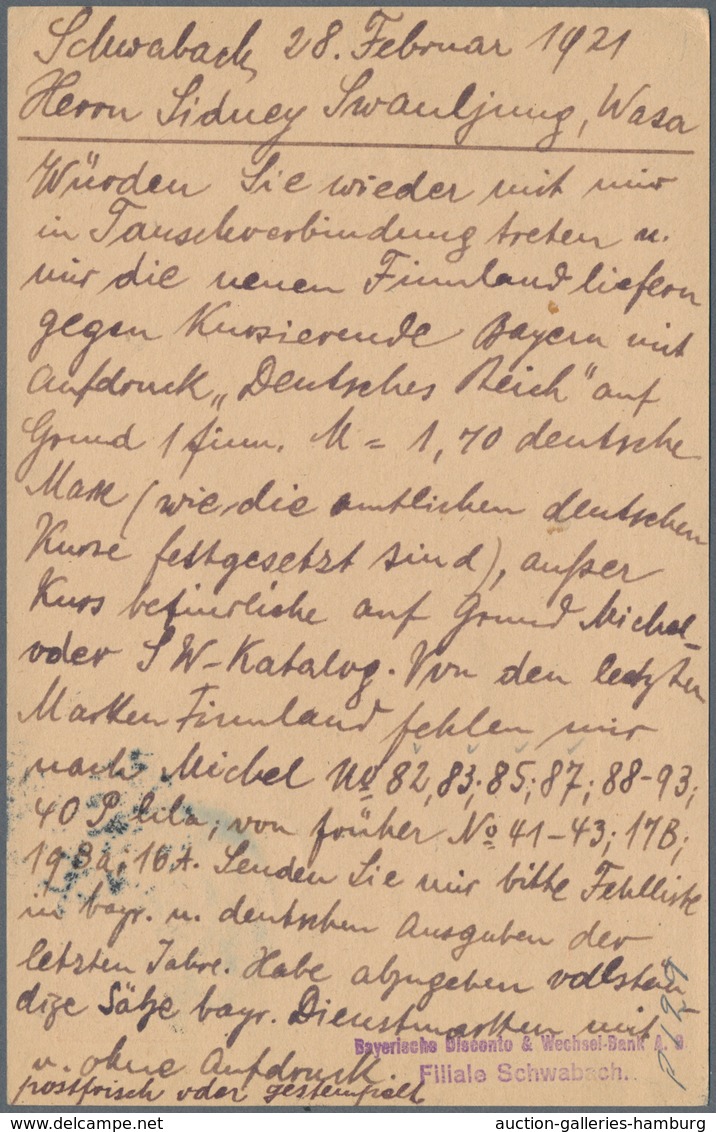 Schwabach, 28. Februar 1921
Herrn Sidney Swanljung, Wasa
Würden Sie wieder mit mir
in Tauschverbindung treten u.
mir die neuen Finnland liefern
gegen Kursierende Bayern mit
Aufdruck „Deutsches Reich" auf
Grund 1 finn. M = 1,70 deutsche
Mark (wie die amtlichen deutschen
Kurse festgesetzt sind), außer
Kurs befindliche auf Grund Michel-
oder SW-Katalog. Von den letzten
Marken Finnland fehlen mir
nach Michel No 82, 83; 85; 87; 88-93;
40 P lila; von früher No 41-43; 17B;
19Ba; 16A. Senden Sie mir bitte Fehlliste
in bayr. u. deutschen Ausgaben der
letzten Jahre. Habe abzugeben vollstän
dige Sätze bayr. Dienstmarken mit
u. ohne Aufdruck.
postfrisch oder gestempelt
Bayerische Disconto & Wechsel-Bank A. G
Filiale Schwabach.
auction-galleries-hamburg